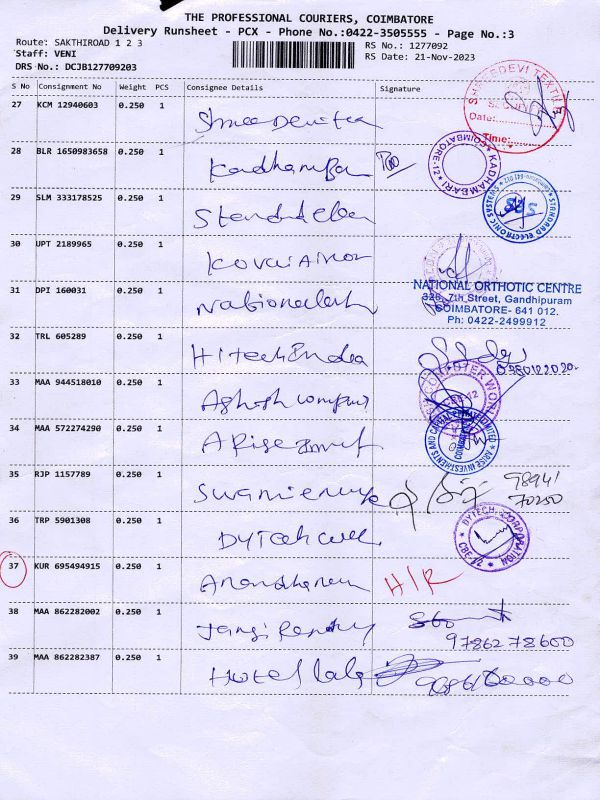 THE PROFESSIONAL COURIERS, COIMBATORE
Delivery Runsheet - PCX - Phone No.:0422-3505555 - Page No.:3
Route: SAKTHIROAD 1 2 3 RS No.: 1277092
Staff: VENI RS Date: 21-Nov-2023
DRS No.: DCJB127709203
S No Consignment No Weight PCS Consignee Details Signature
27 KCM 12940603 0.250 1 Shree Devi tex
SHREEDEVI TEXTILE
Date:
Time:
28 BLR 1650983658 0.250 1 Kadhambari
KADHAMBARI COIMBATORE-12
29 SLM 333178525 0.250 1
STANDARD ELECTRONIC SYSTEMS
30 UPT 2189965 0.250 1
31 DPI 160031 0.250 1
NATIONAL ORTHOTIC CENTRE
326, 7th Street, Gandhipuram
COIMBATORE- 641 012.
Ph: 0422-2499912
32 TRL 605289 0.250 1 Hitech India
33 MAA 944518010 0.250 1
34 MAA 572274290 0.250 1 Arise
ARISE INVESTMENTS AND CAPITAL LIMITED
35 RJP 1157789 0.250 1
98941
70250
36 TRP 5901308 0.250 1 Dytech
DYTECH CORPORATION CBE-12
37 KUR 695494915 0.250 1 H/R
38 MAA 862282002 0.250 1
9786278600
39 MAA 862282387 0.250 1 Hotel